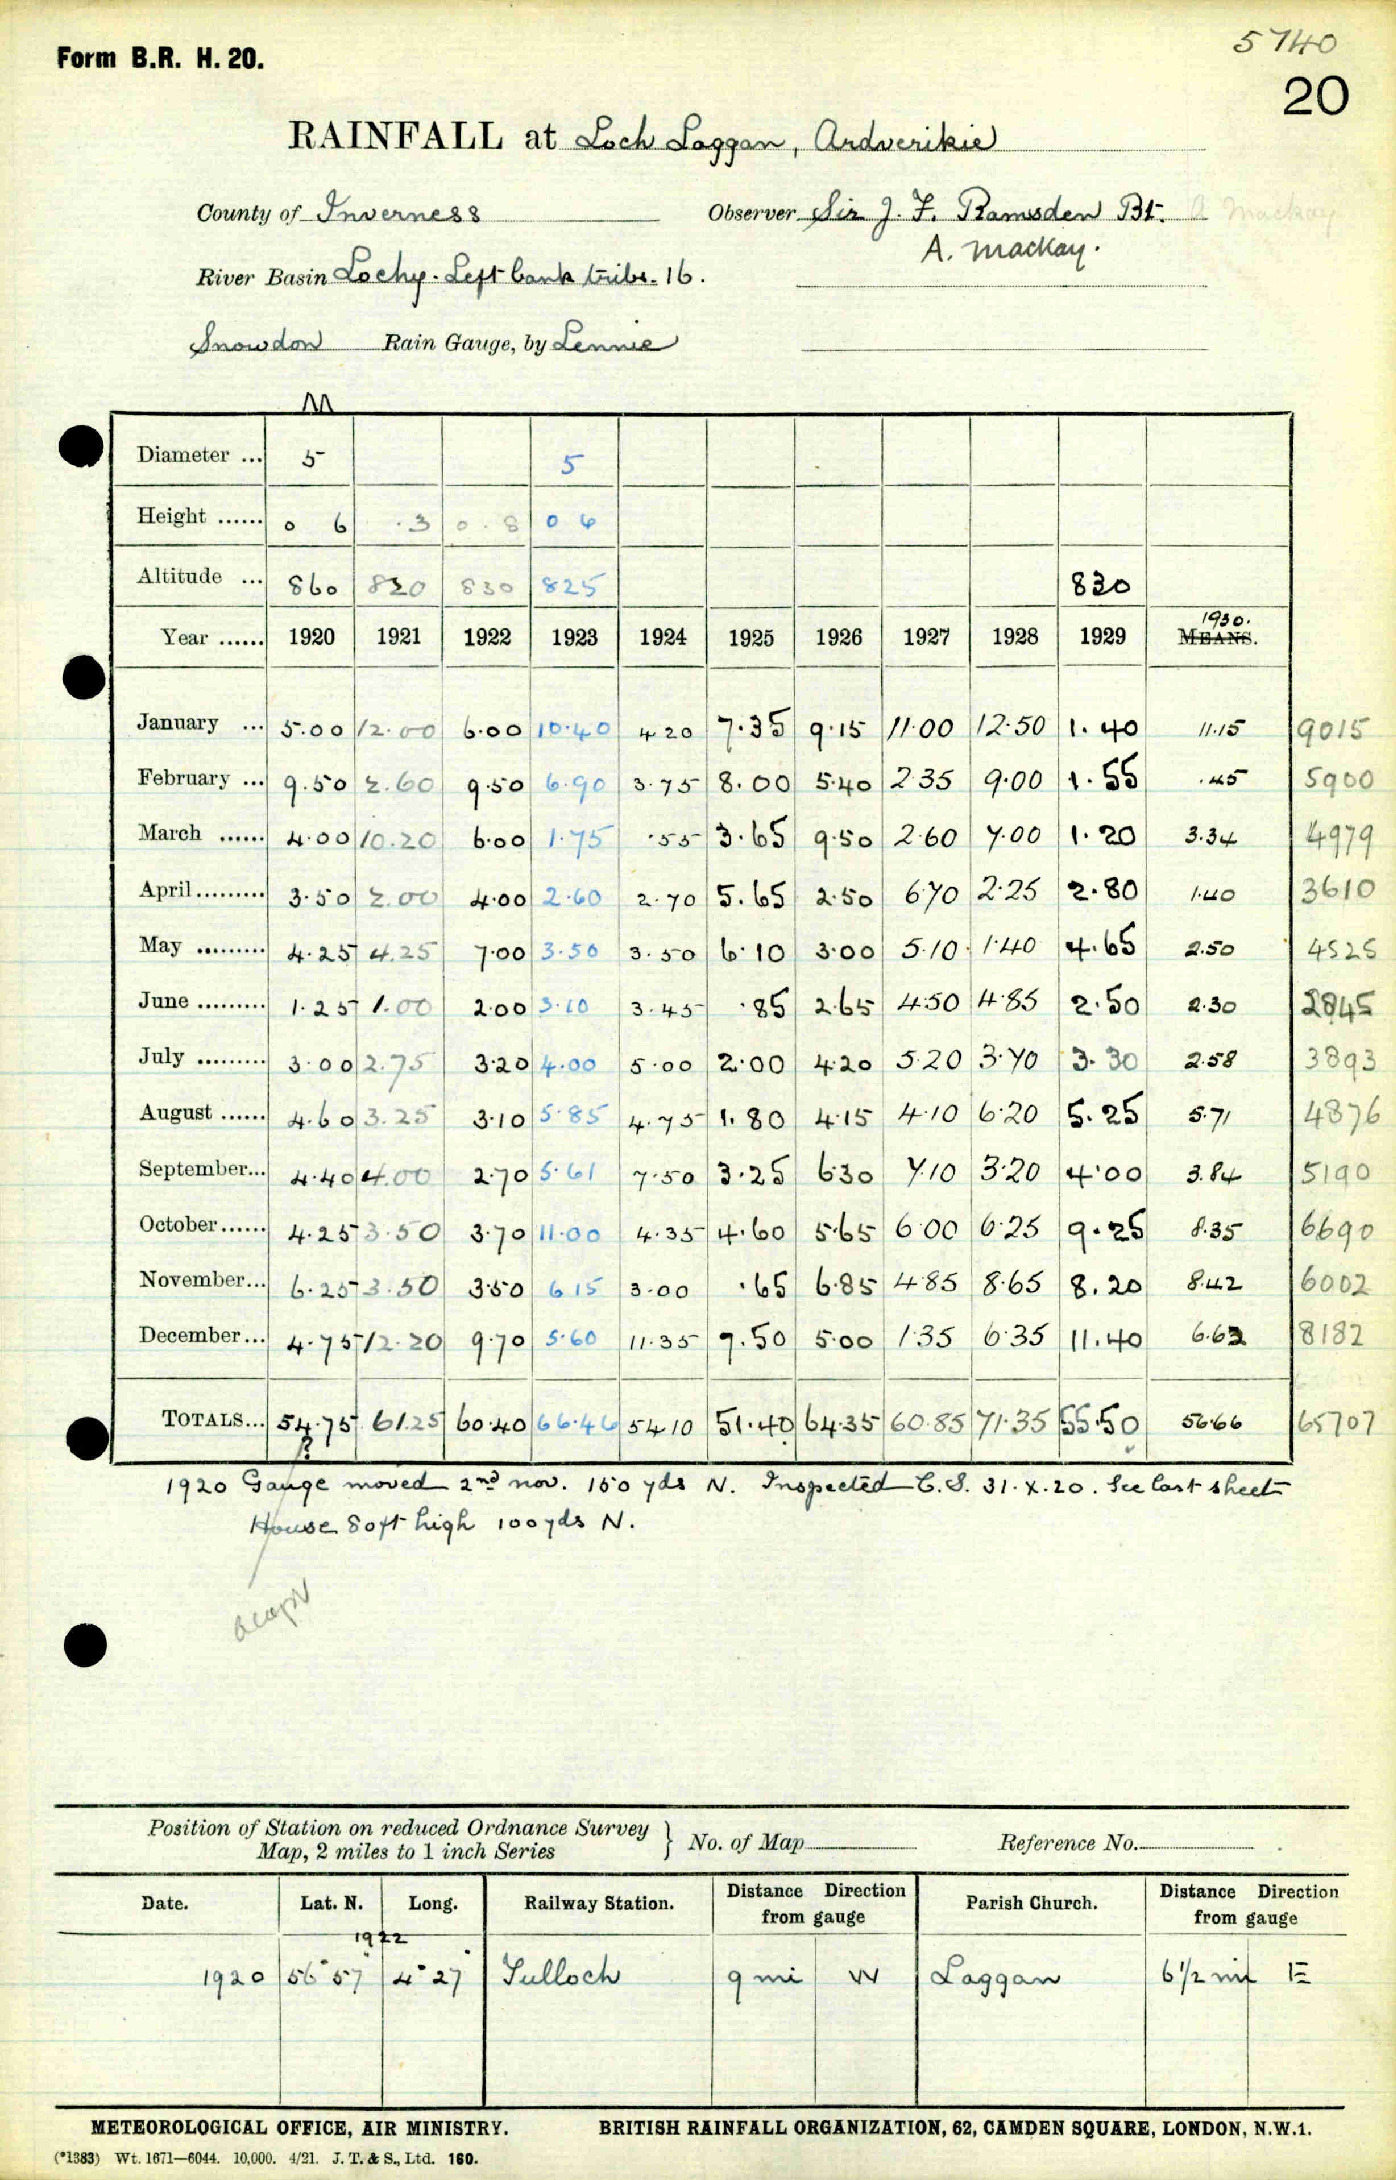 5740
Form B.R. H. 20.
20
RAINFALL at Loch Laggan, Ardverikie
County of Inverness Observer Sir J. F. Ramsden Bt. A Mackay
A. Mackay.
River Basin Lochy. Left bank tribs. 16.
Snowdon Rain Gauge, by Lennie
M
Diameter ... 5 5
Height ...... 0 6 .3 0.8 0 6
Altitude ... 860 830 825 830
1930.
Year ...... 1920 1921 1922 1923 1924 1925 1926 1927 1928 1929 MEANS.
January ... 5.00 12.00 6.00 10.40 4 20 7.35 9.15 11.00 12.50 1.40 11.15 9015
February ... 9.50 2.60 9.50 6.90 3.75 8.00 5.40 2 35 9.00 1.55 .45 5900
March ...... 4.00 10.20 6.00 1.75 .55 3.65 9.50 2.60 7.00 1.20 3.34 4979
April......... 3.50 2.00 4.00 2.60 2.70 5.65 2.50 6 70 2.25 2.80 1.40 3610
May ......... 4.25 4.25 7.00 3.50 3.50 6.10 3.00 5.10 1.40 4.65 2.50 4525
June ......... 1.25 1.00 2.00 3.10 3.45 .85 2.65 4.50 4.85 2.50 2.30 2845
July ......... 3.00 2.75 3.20 4.00 5.00 2.00 4.20 5.20 3.70 3.30 2.58 3893
August ...... 4.60 3.25 3.10 5.85 4.75 1.80 4.15 4.10 6.20 5.25 5.71 4876
September... 4.40 4.00 2.70 5.61 7.50 3.25 6.30 7.10 3.20 4.00 3.84 5190
October...... 4.25 3.50 3.70 11.00 4.35 4.60 5.65 6.00 6.25 9.25 8.35 6690
November... 6.25 3.50 3.50 6 15 3.00 .65 6.85 4.85 8.65 8.20 8.42 6002
December... 4.75 12.20 9.70 5.60 11.35 7.50 5.00 1.35 6.35 11.40 6.62 8182
TOTALS... 54.75 61.25 60.40 66.46 54.10 51.40 64.35 60.85 71.35 55.50 56.66 65707
?
1920 Gauge moved 2nd nov. 150 yds N. Inspected C.S. 31.X.20. See last sheet
House 80ft high 100yds N.
accept
Position of Station on reduced Ordnance Survey
Map, 2 miles to 1 inch Series } No. of Map Reference No.
Date. Lat. N. Long. Railway Station. Distance Direction from gauge Parish Church. Distance Direction from gauge
1922
1920 56° 57' 4° 27' Tulloch 9 mi W Laggan 6 1/2 mi E
METEOROLOGICAL OFFICE, AIR MINISTRY. BRITISH RAINFALL ORGANIZATION, 62, CAMDEN SQUARE, LONDON, N.W.1.
(*1383) Wt. 1671—6044. 10,000. 4/21. J. T. & S., Ltd. 160.